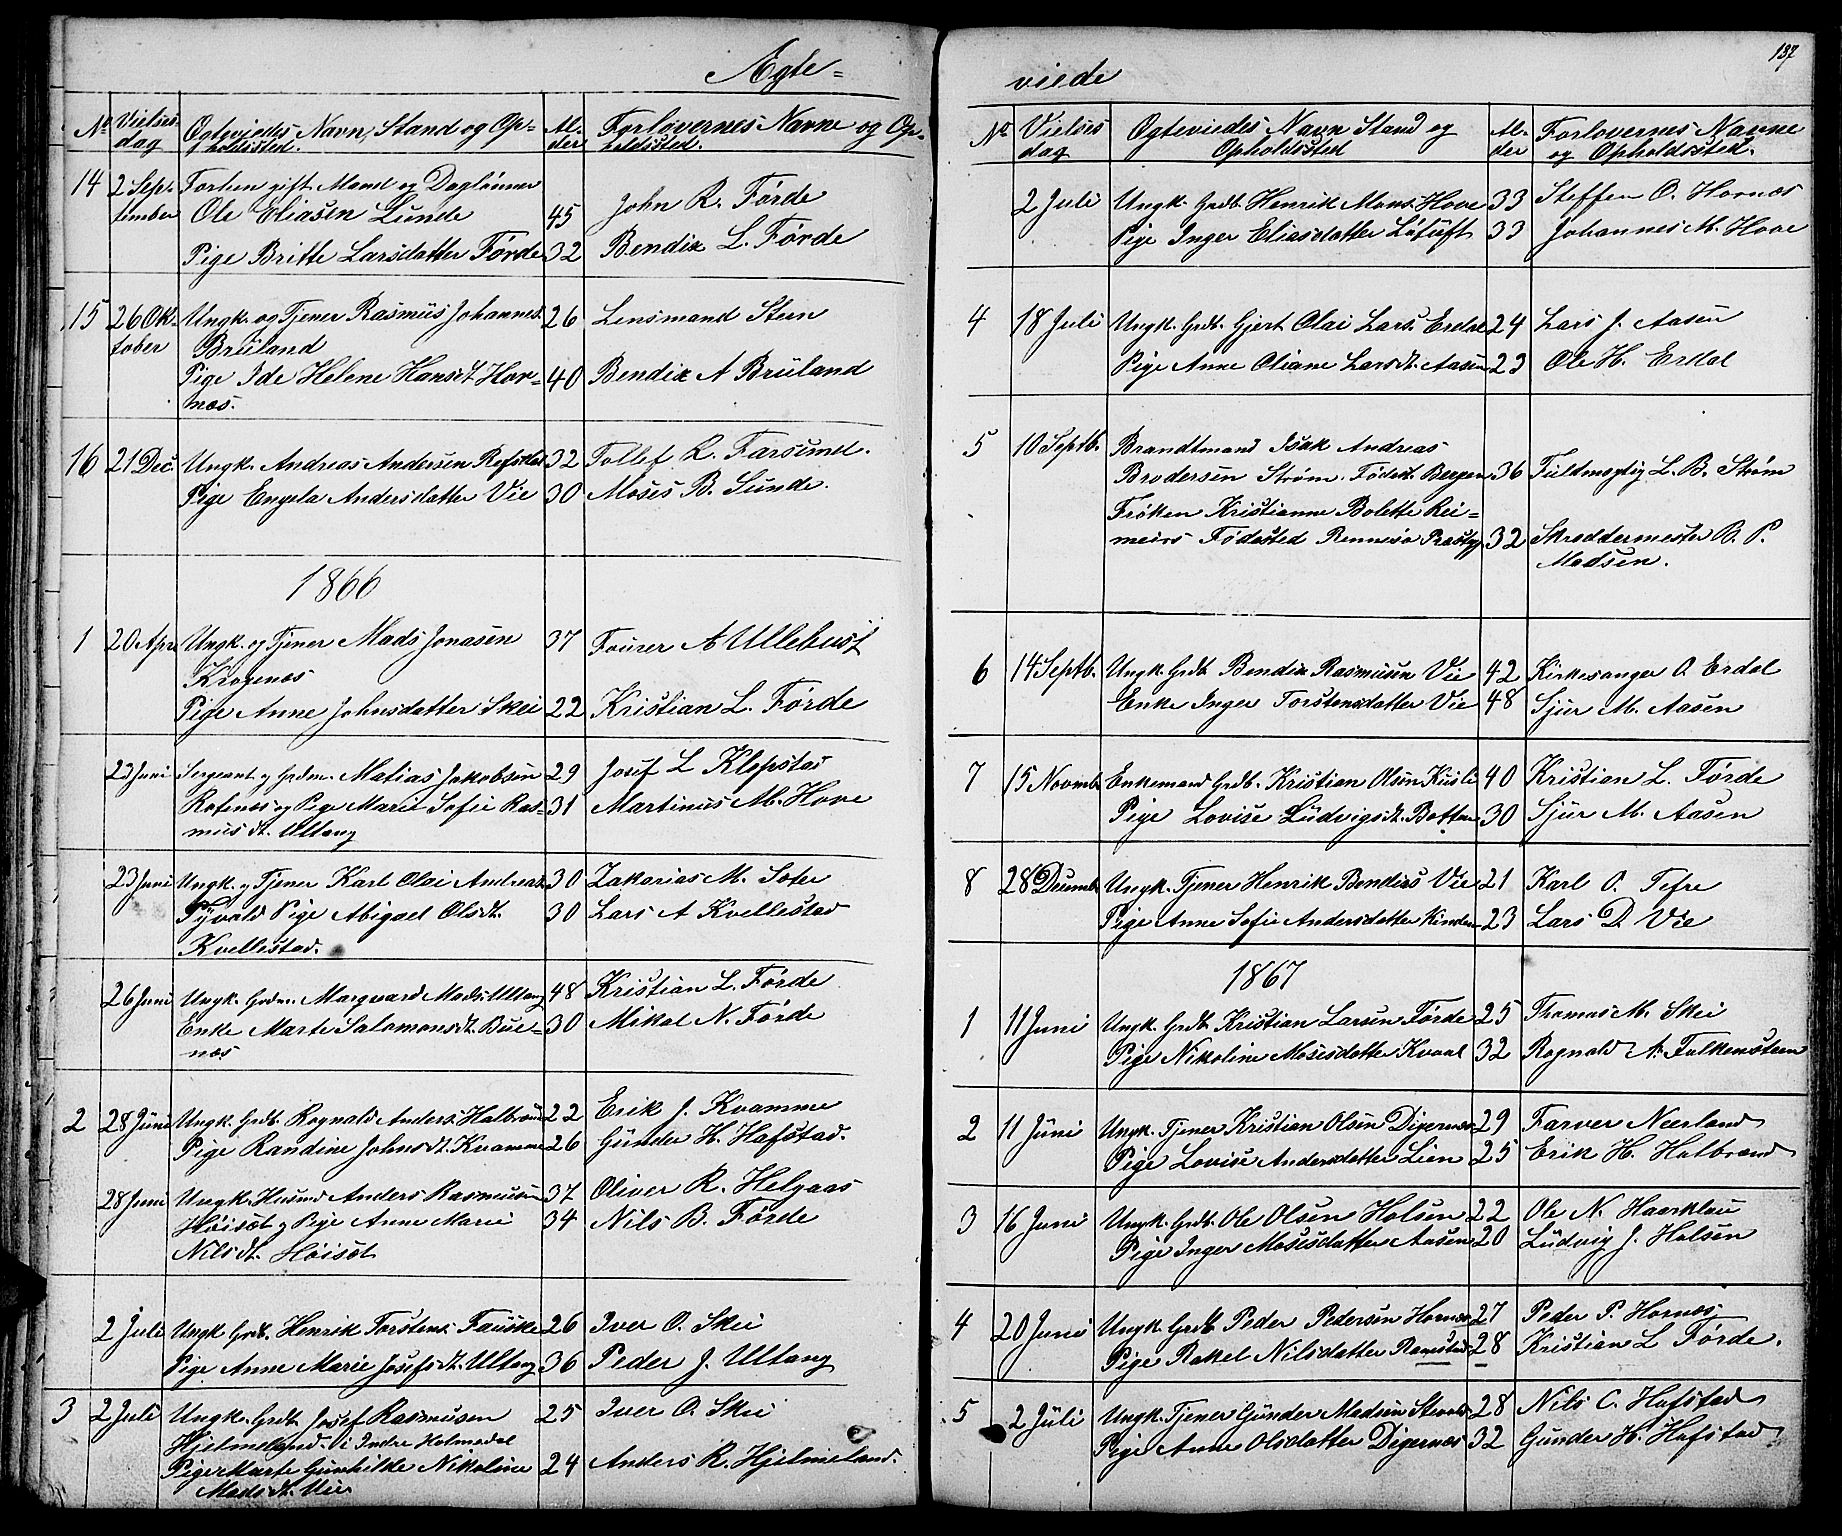 Ægte=
No Vielses Ægteviedes Navn, Stand og Op= Al= Forlovernes Navne og Op=
dag holdssted. der holdssted.
14 2 Sep= Forhen gift Mand og Daglönner
tember Ole Eliasen Lunde 45 John R. Förde
Pige Britte Larsdatter Förde 32 Bendix L. Förde
15 26 Ok= Ungk. og Tjener Rasmus Johannes. 26 Lensmand Steen
tober Bruland
Pige Ide Helene Hansdt. Hor= 40 Bendix A Bruland
næs.
16 21 Dec. Ungk. Andreas Andersen Refsdal 32 Tollef R. Farsund.
Pige Engela Andersdatter Vie 30 Moses B. Sunde.
1866
1 20 Apr. Ungk. og Tjener Mads Jonasen 37 Fourer A Ullebust
Krogenæs
Pige Anne Johnsdatter Skei 22 Kristian L. Förde
23 Juni Sergeant og Grdm. Matias Jakobsen 29 Josef L Klepstad
og Pige Marie Sofie Ras= 31 Martinus M. Hove
musdt. Ultang
23 Juni Ungk. og Tjener Karl Olai Andreas. 30 Zakarias M. Sater
Pige Abigael Olsdt. 30 Lars A Kvellestad
Kvellestad.
26 Juni Ungk. Grdm. Marqvard Mads. Ultang 48 Kristian L. Förde
Enke Marte Salomonsdt. Bue= 30 Mikal N. Förde
næs
2 28 Juni Ungk. Grdb. Rognald Anders. Halbrænd 22 Erik J. Kvamme
Pige Randine Johnsdt. Kvamme 26 Gunder H. Hafstad.
28 Juni Ungk. Husmd. Anders Rasmusen 37 Oliver R. Helgaas
Höisæt og Pige Anne Marie 34 Nils B. Förde
Nilsdt. Höisæt
2 Juli Ungk. Grdb. Henrik Torstens. Fauske 26 Iver O. Skei
Pige Anne Marie Josefsdt. Ultang 36 Peder J. Ultang
3 2 Juli Ungk. Grdb. Josef Rasmusen 25 Iver O. Skei
Hjelmeland. i Indre Holmedal
Pige Marte Gunhilde Nikoline 24 Anders R. Hjelmeland.
Madsdt. Vie
137
viede
No Vielses Ægteviedes Navn Stand og Al= Forlovernes Navne
dag Opholdssted der og Opholdssted.
2 Juli Ungk. Grdb. Henrik Mons. Hove 33 Steffen O. Hornæs
Pige Inger Eliasdatter Løtuft 33 Johannes M. Hove
4 18 Juli Ungk. Grdb. Gjert Olai Lars. Erdal 24 Lars J. Aasen
Pige Anne Oliane Larsdt. Aasen 23 Ole H. Erdal
5 10 Septb. Brandtmand Isak Andreas
Brodersen Ström. Födest. Bergen 36 Fuldmægtig L. B. Ström
Fröken Kristianne Bolette Rei=
meirs Födested Rennesö Præstgj. 32 Skræddermester B. P.
Madsen.
6 14 Septb. Ungk. Grdb. Bendix Rasmusen Vie 42 Kirkesanger O Erdal
Enke Inger Torstensdatter Vie 48 Sjur M. Aasen
7 15 Novmb. Enkemand Grdb. Kristian Olsen Kusli 40 Kristian L. Förde
Pige Lovise Ludvigsdt. Botten 30 Sjur M. Aasen
8 28 Decemb. Ungk. Tjener Henrik Bendixs Vie 21 Karl O. Tefre
Pige Anne Sofie Andersdatter Kinden 23 Lars D. Vie
1867
1 11 Juni Ungk. Grdb. Kristian Larsen Förde 25 Thomas M. Skei
Pige Nikoline Mosesdatter Kvaal 32 Rognald A. Falkensteen
2 11 Juni Ungk. Tjener Kristian Olsen Digernæs 29 Farver Neerland
Pige Lovise Andersdatter Lien 25 Erik H. Halbrænd
3 16 Juni Ungk. Grdb. Ole Olsen Holsen 22 Ole N. Haarklau
Pige Inger Mosesdatter Aasen 20 Ludvig J. Holsen
4 20 Juni Ungk. Grdb. Peder Pedersen Hornæs 27 Peder P. Hornæs
Pige Rakel Nilsdatter Ramstad 28 Kristian L Förde.
5 2 Juli Ungk. Tjener Gunder Madsen 28 Nils C. Hafstad
Pige Anne Olsdatter Digernæs 32 Gunder H. Hafstad